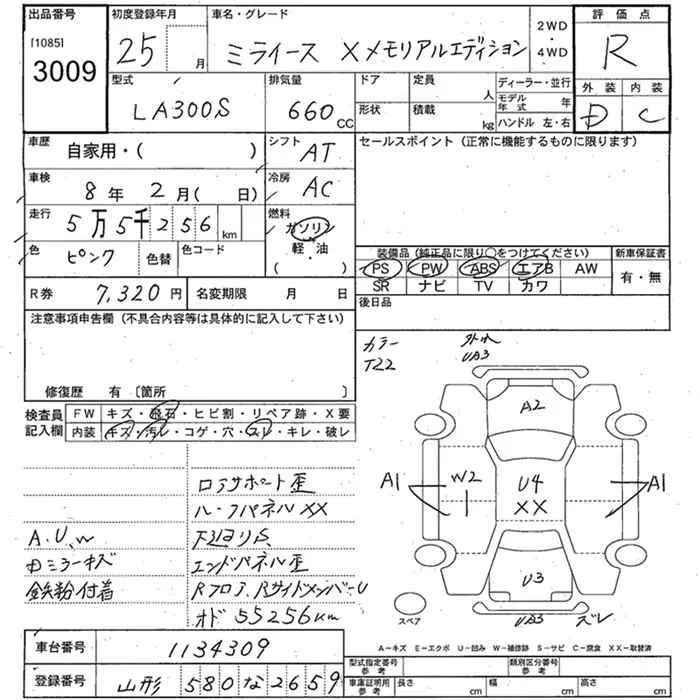 出品番号
[1085]
3009
初度登録年月
25 月
車名・グレード
ミライース Xメモリアルエディション
2WD
・
4WD
評価点
R
型式
LA300S
排気量
660 CC
ドア
定員
人
形状
積載
kg
ディーラー・並行
モデル年式 年
ハンドル 左・右
外装
D
内装
C
車歴
自家用・( )
シフト
AT
セールスポイント (正常に機能するものに限ります)
車検
8年 2月( 日)
冷房
AC
走行
5万5千256 km
燃料
ガソリン
・
軽・油
( )
色
ピンク
色替
色コード
装備品 (純正品に限り○をつけてください)
新車保証書
PS PW ABS エアB AW
SR ナビ TV カワ
有・無
R券
7,320円
名変期限 月 日
後日品
注意事項申告欄 (不具合内容等は具体的に記入して下さい)
修復歴 有〔箇所 〕
カラー
T22
検査員
記入欄
FW キズ・飛石・ヒビ割・リペア跡・X要
内装 キズ・汚レ・コゲ・穴・スレ・キレ・破レ
A.U.W
ミラーキズ
鉄粉付着
ロアサポート歪
ルーフパネルXX
下廻りS
エンドパネル歪
Rフロア、RサイドメンバーU
オド 55256km
UB3
A2
A1
W2
U4
XX
A1
U3
UB3
ズレ
スペア
A-キズ E-エクボ U-凹み W-補修跡 S-サビ C-腐食 XX-取替済
車台番号
1134309
登録番号
山形 580 な 2659
型式指定番号
参考
類別区分番号
参考
車庫証明用
参考
長さ cm
幅 cm
高さ cm